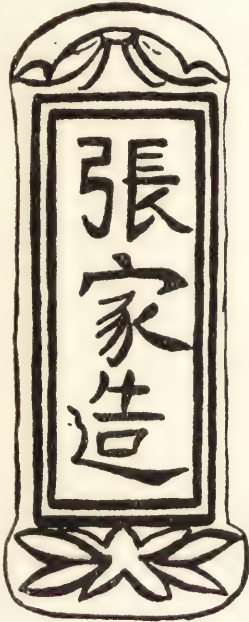 張家造